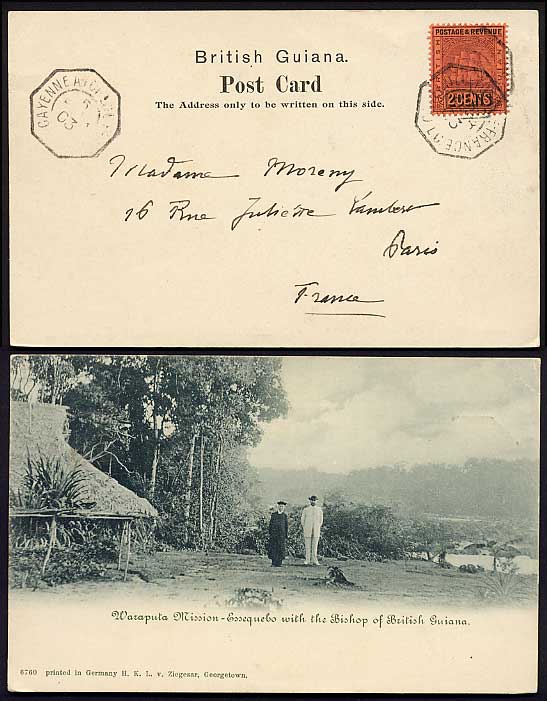 British Guiana.
Post Card
The Address only to be written on this side.
CAYENNE
03
POSTAGE & REVENUE
BRITISH
GUIANA
2 CENTS
FRANCE
3
Madame Moreny
16 Rue Juliette Lambert
Paris
France
Waraputa Mission - Essequebo with the Bishop of British Guiana.
6760 printed in Germany H. K. L. v. Ziegesar, Georgetown.